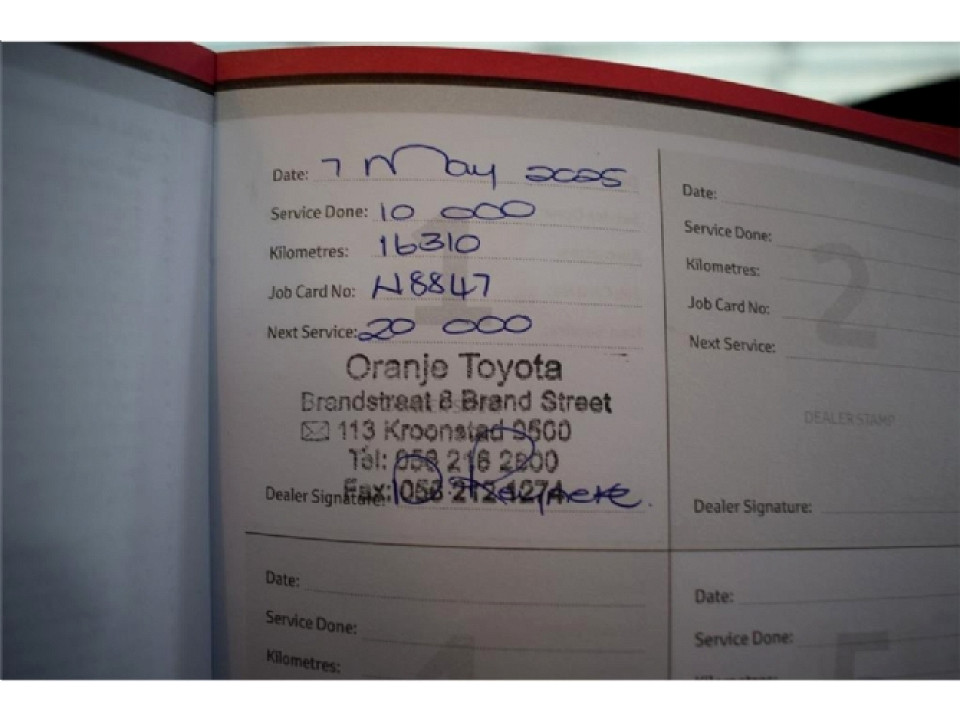 Date: 7 May 2025
Service Done: 10 000
Kilometres: 16310
Job Card No: H8847
Next Service: 20 000
1
Oranje Toyota
Brandstraat 8 Brand Street
113 Kroonstad 9500
Tel: 056 216 2800
Fax: 056 212 1274
Dealer Signature:
Date:
Service Done:
Kilometres:
Job Card No:
Next Service:
2
DEALER STAMP
Dealer Signature:
Date:
Service Done:
Kilometres:
4
Date:
Service Done:
5